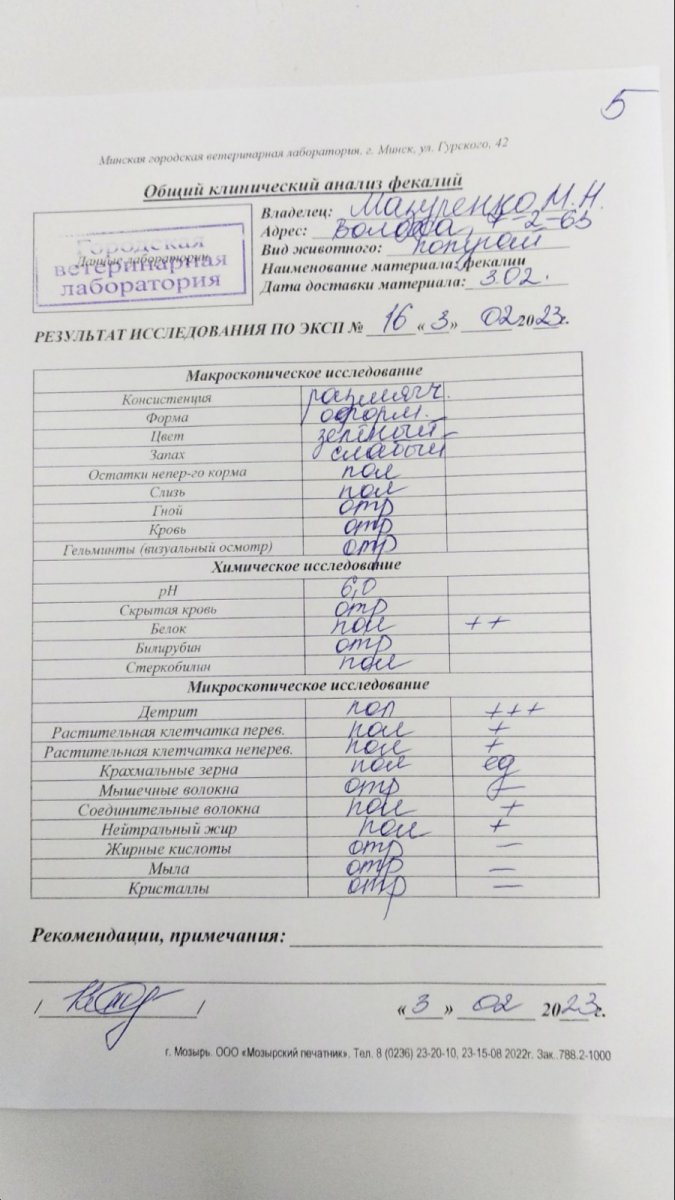 5
Минская городская ветеринарная лаборатория, г. Минск, ул. Гурского, 42
Общий клинический анализ фекалий
Данные лаборатории
Городская
ветеринарная
лаборатория
Владелец: Мазуренко М.Н.
Адрес: 7-2-63
Вид животного: попугай
Наименование материала: фекалии
Дата доставки материала: 3.02.
РЕЗУЛЬТАТ ИССЛЕДОВАНИЯ ПО ЭКСП № 16 «3» 02 2023г.
Макроскопическое исследование
Консистенция размягч.
Форма оформ.
Цвет зелёный
Запах слабый
Остатки непер-го корма пол
Слизь пол
Гной отр
Кровь отр
Гельминты (визуальный осмотр) отр
Химическое исследование
pH 6,0
Скрытая кровь отр
Белок пол ++
Билирубин отр
Стеркобилин пол
Микроскопическое исследование
Детрит пол +++
Растительная клетчатка перев. пол +
Растительная клетчатка неперев. пол +
Крахмальные зерна пол ед
Мышечные волокна отр –
Соединительные волокна пол +
Нейтральный жир пол +
Жирные кислоты отр –
Мыла отр –
Кристаллы отр –
Рекомендации, примечания:
/ / «3» 02 2023г.
г. Мозырь. ООО «Мозырский печатник». Тел. 8 (0236) 23-20-10, 23-15-08 2022г. Зак..788.2-1000